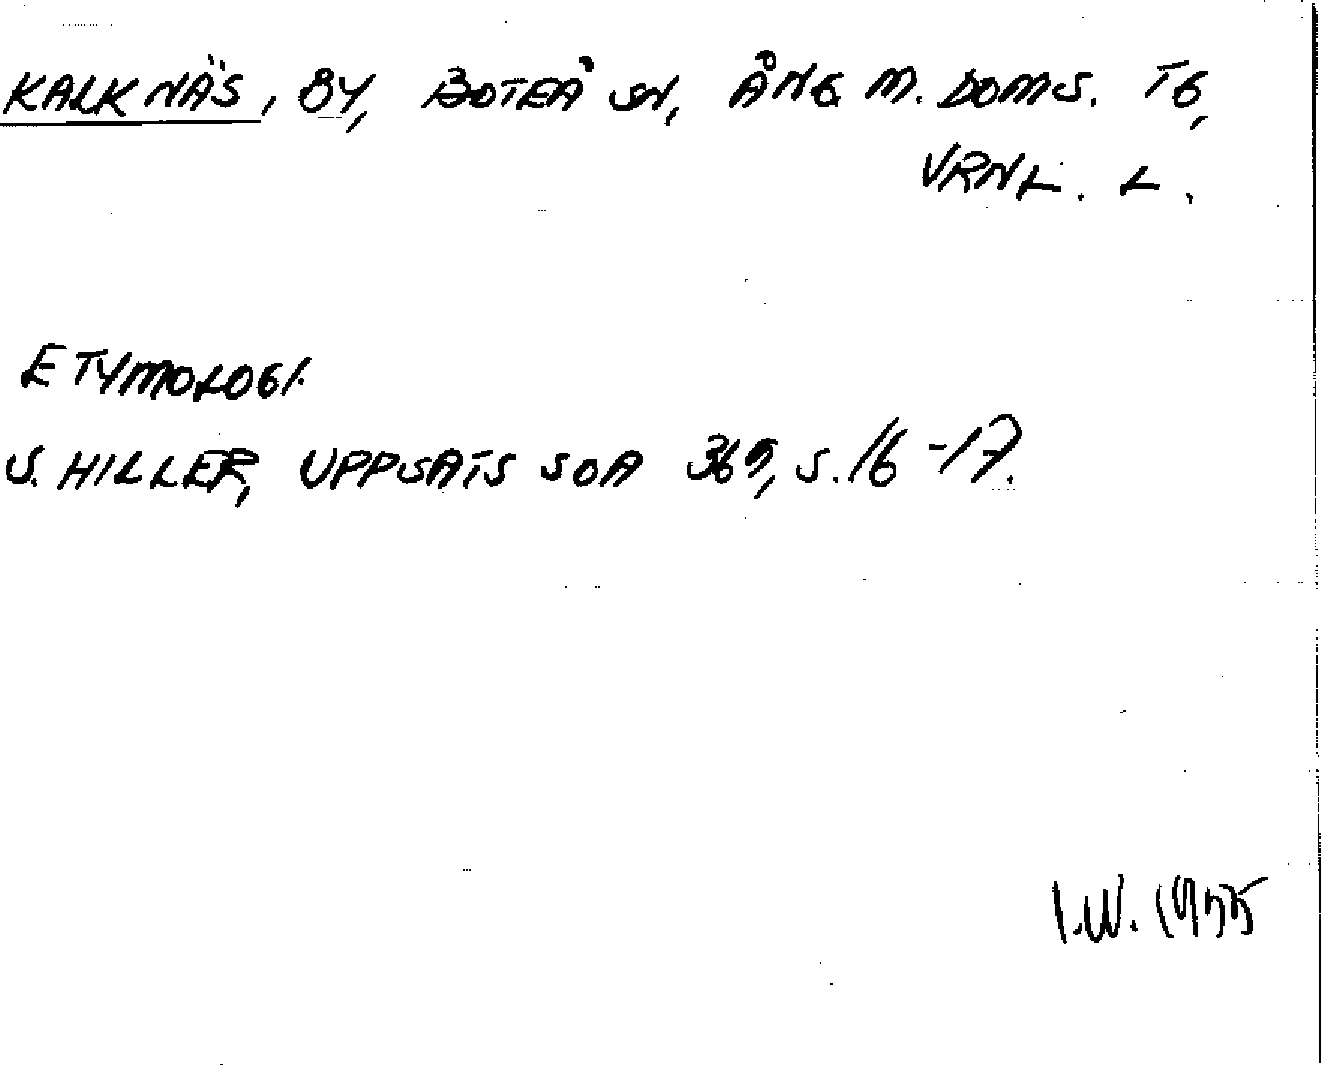 KALKNÄS, BY, BOTEÅ SN, ÅNG. M. DOMS. TG,
VRNL. L.
ETYMOLOGI.
S. HILLER, UPPSATS SOA 369, S. 16-17.
I.W. 1975